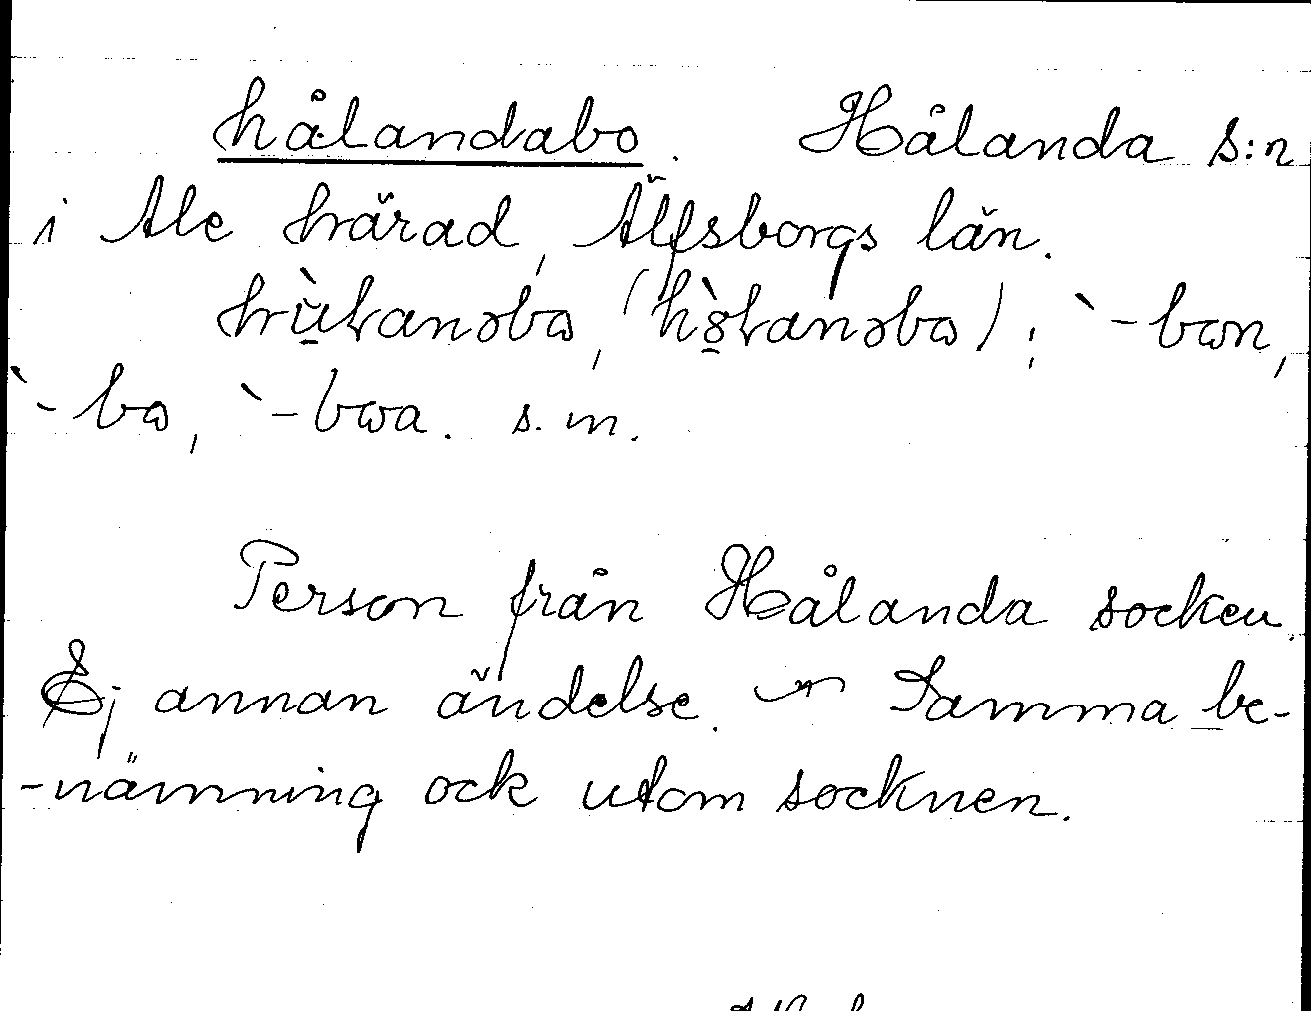 hålandabo. Hålanda s:n
i Ale härad, Älfsborgs län.
hùlanəbω, (hòlanəbω); `-bωn,
`-bω, `-bωa. s. m.
Person från Hålanda socken.
Ej annan ändelse. ~ Samma be-
-nämning ock utom socknen.